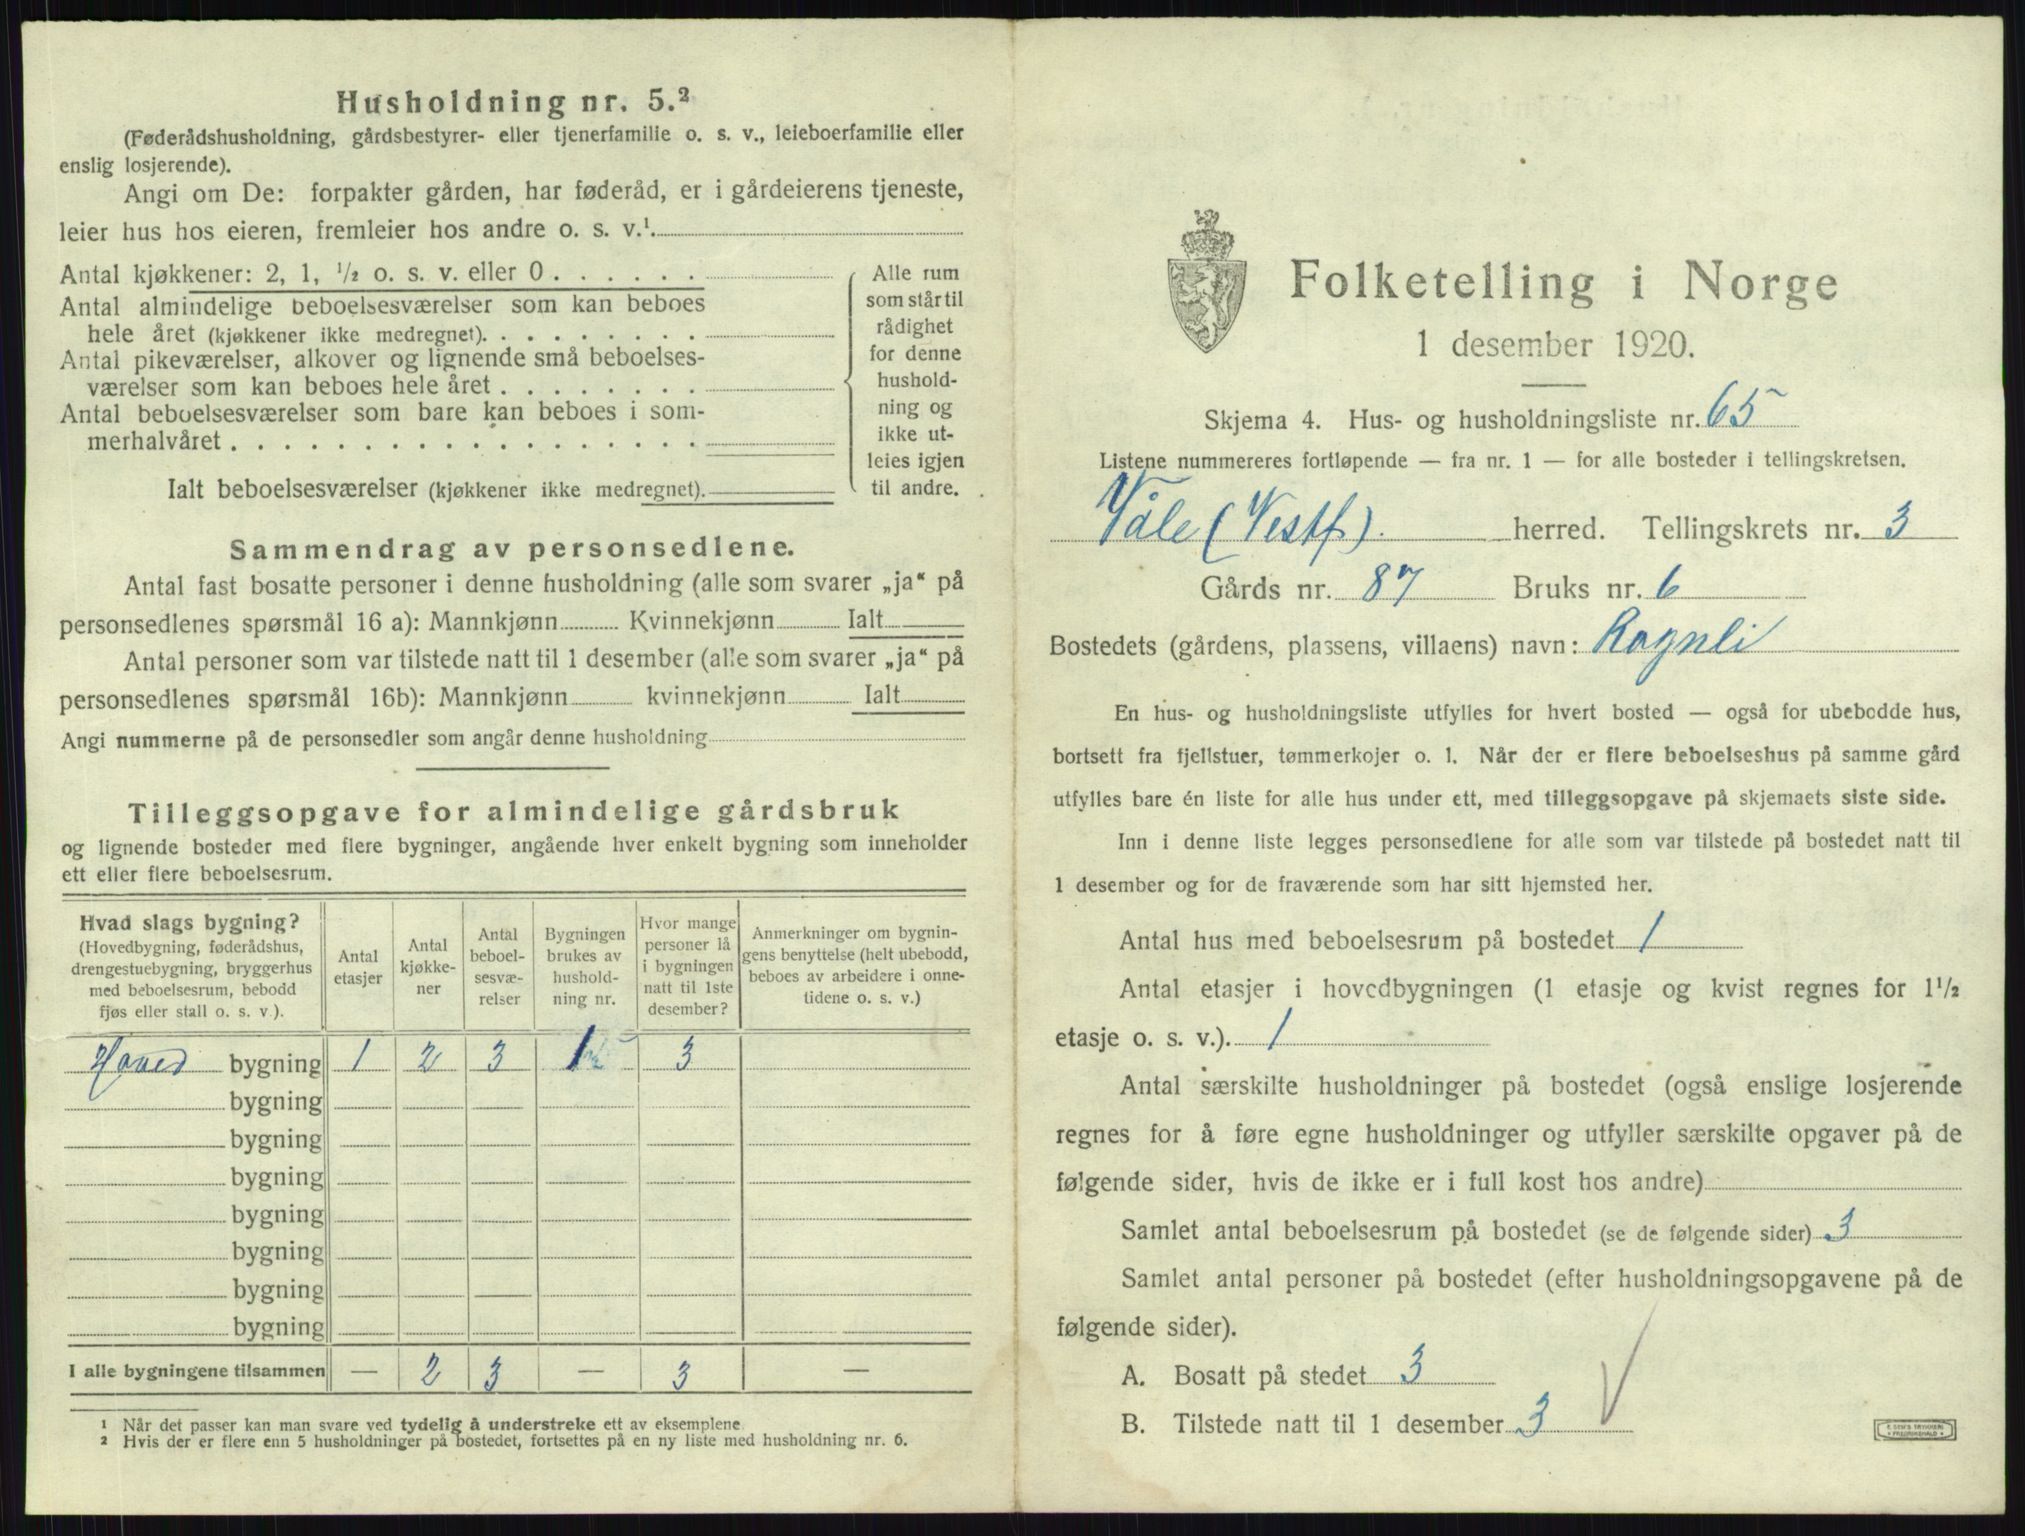 Husholdning nr. 5.²
(Føderådshusholdning, gårdsbestyrer- eller tjenerfamilie o. s. v., leieboerfamilie eller
enslig losjerende).
Angi om De: forpakter gården, har føderåd, er i gårdeierens tjeneste,
leier hus hos eieren, fremleier hos andre o. s. v.¹
Antal kjøkkener: 2, 1, ½ o. s. v. eller 0
Antal almindelige beboelsesværelser som kan beboes
hele året (kjøkkener ikke medregnet).
Antal pikeværelser, alkover og lignende små beboelses-
værelser som kan beboes hele året
Antal beboelsesværelser som bare kan beboes i som-
merhalvåret
Ialt beboelsesværelser (kjøkkener ikke medregnet).
Alle rum
som står til
rådighet
for denne
hushold-
ning og
ikke ut-
leies igjen
til andre.
Sammendrag av personsedlene.
Antal fast bosatte personer i denne husholdning (alle som svarer „ja“ på
personsedlenes spørsmål 16 a): Mannkjønn Kvinnekjønn Ialt
Antal personer som var tilstede natt til 1 desember (alle som svarer „ja“ på
personsedlenes spørsmål 16b): Mannkjønn kvinnekjønn Ialt
Angi nummerne på de personsedler som angår denne husholdning
Tilleggsopgave for almindelige gårdsbruk
og lignende bosteder med flere bygninger, angående hver enkelt bygning som inneholder
ett eller flere beboelsesrum.
Hvad slags bygning?
(Hovedbygning, føderådshus,
drengestuebygning, bryggerhus
med beboelsesrum, bebodd
fjøs eller stall o. s. v.).
Antal
etasjer
Antal
kjøkke-
ner
Antal
beboel-
sesvæ-
relser
Bygningen
brukes av
hushold-
ning nr.
Hvor mange
personer lå
i bygningen
natt til 1ste
desember?
Anmerkninger om bygnin-
gens benyttelse (helt ubebodd,
beboes av arbeidere i onne-
tidene o. s. v.)
Hoved bygning 1 2 3 1 3
bygning
bygning
bygning
bygning
bygning
bygning
bygning
I alle bygningene tilsammen — 2 3 — 3 —
¹ Når det passer kan man svare ved tydelig å understreke ett av eksemplene.
² Hvis der er flere enn 5 husholdninger på bostedet, fortsettes på en ny liste med husholdning nr. 6.
Folketelling i Norge
1 desember 1920.
Skjema 4. Hus- og husholdningsliste nr. 65
Listene nummereres fortløpende — fra nr. 1 — for alle bosteder i tellingskretsen.
Våle (Vestf). herred. Tellingskrets nr. 3
Gårds nr. 87 Bruks nr. 6
Bostedets (gårdens, plassens, villaens) navn: Rognli
En hus- og husholdningsliste utfylles for hvert bosted — også for ubebodde hus,
bortsett fra fjellstuer, tømmerkojer o. l. Når der er flere beboelseshus på samme gård
utfylles bare én liste for alle hus under ett, med tilleggsopgave på skjemaets siste side.
Inn i denne liste legges personsedlene for alle som var tilstede på bostedet natt til
1 desember og for de fraværende som har sitt hjemsted her.
Antal hus med beboelsesrum på bostedet 1
Antal etasjer i hovedbygningen (1 etasje og kvist regnes for 1½
etasje o. s. v.). 1
Antal særskilte husholdninger på bostedet (også enslige losjerende
regnes for å føre egne husholdninger og utfyller særskilte opgaver på de
følgende sider, hvis de ikke er i full kost hos andre)
Samlet antal beboelsesrum på bostedet (se de følgende sider) 3
Samlet antal personer på bostedet (efter husholdningsopgavene på de
følgende sider).
A. Bosatt på stedet 3
B. Tilstede natt til 1 desember 3